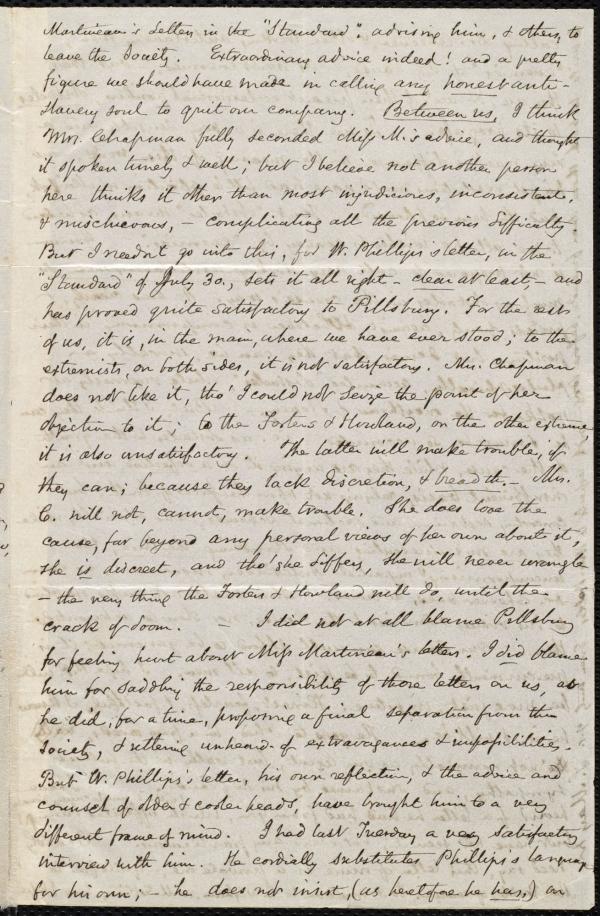 Martineau's Letters in the "Standard", advising him, & others, to
leave the Society. Extraordinary advice indeed! and a pretty
figure we should have made in calling any honest anti-
slavery soul to quit our company. Between us, I think
Mrs. Chapman fully seconded Miss M.'s advice, and thought
it spoken timely & well; but I believe not another person
here thinks it other than most injudicious, inconsistent,
& mischievous, – complicating all the previous difficulty.
But I needn't go into this, for W. Phillips's letter, in the
"Standard" of July 30., sets it all right – clear at least, – and
has proved quite satisfactory to Pillsbury. For the rest
of us, it is, in the main, where we have ever stood; to the
extremists, on both sides, it is not satisfactory. Mrs. Chapman
does not like it, tho' I could not seize the point of her
objection to it; to the Fosters & Howland, on the other extreme,
it is also unsatisfactory. The latter will make trouble, if
they can; because they lack discretion, & breadth. – Mrs.
C. will not, cannot, make trouble. She does love the
cause, far beyond any personal views of her own about it,
she is discreet, and tho' she differs, she will never wrangle
– the very thing the Fosters & Howland will do, until the
crack of doom. – I did not at all blame Pillsbury
for feeling hurt about Miss Martineau's letters. I did blame
him for saddling the responsibility of those letters on us, as
he did, for a time, proposing a final separation from the
Society, & uttering unheard-of extravagances & impossibilities.
But W. Phillips's letter, his own reflection, & the advice and
counsel of older & cooler heads, have brought him to a very
different frame of mind. I had last Tuesday a very satisfactory
interview with him. He cordially substitutes Phillips's language
for his own; – he does not insist, (as heretofore he has,) on